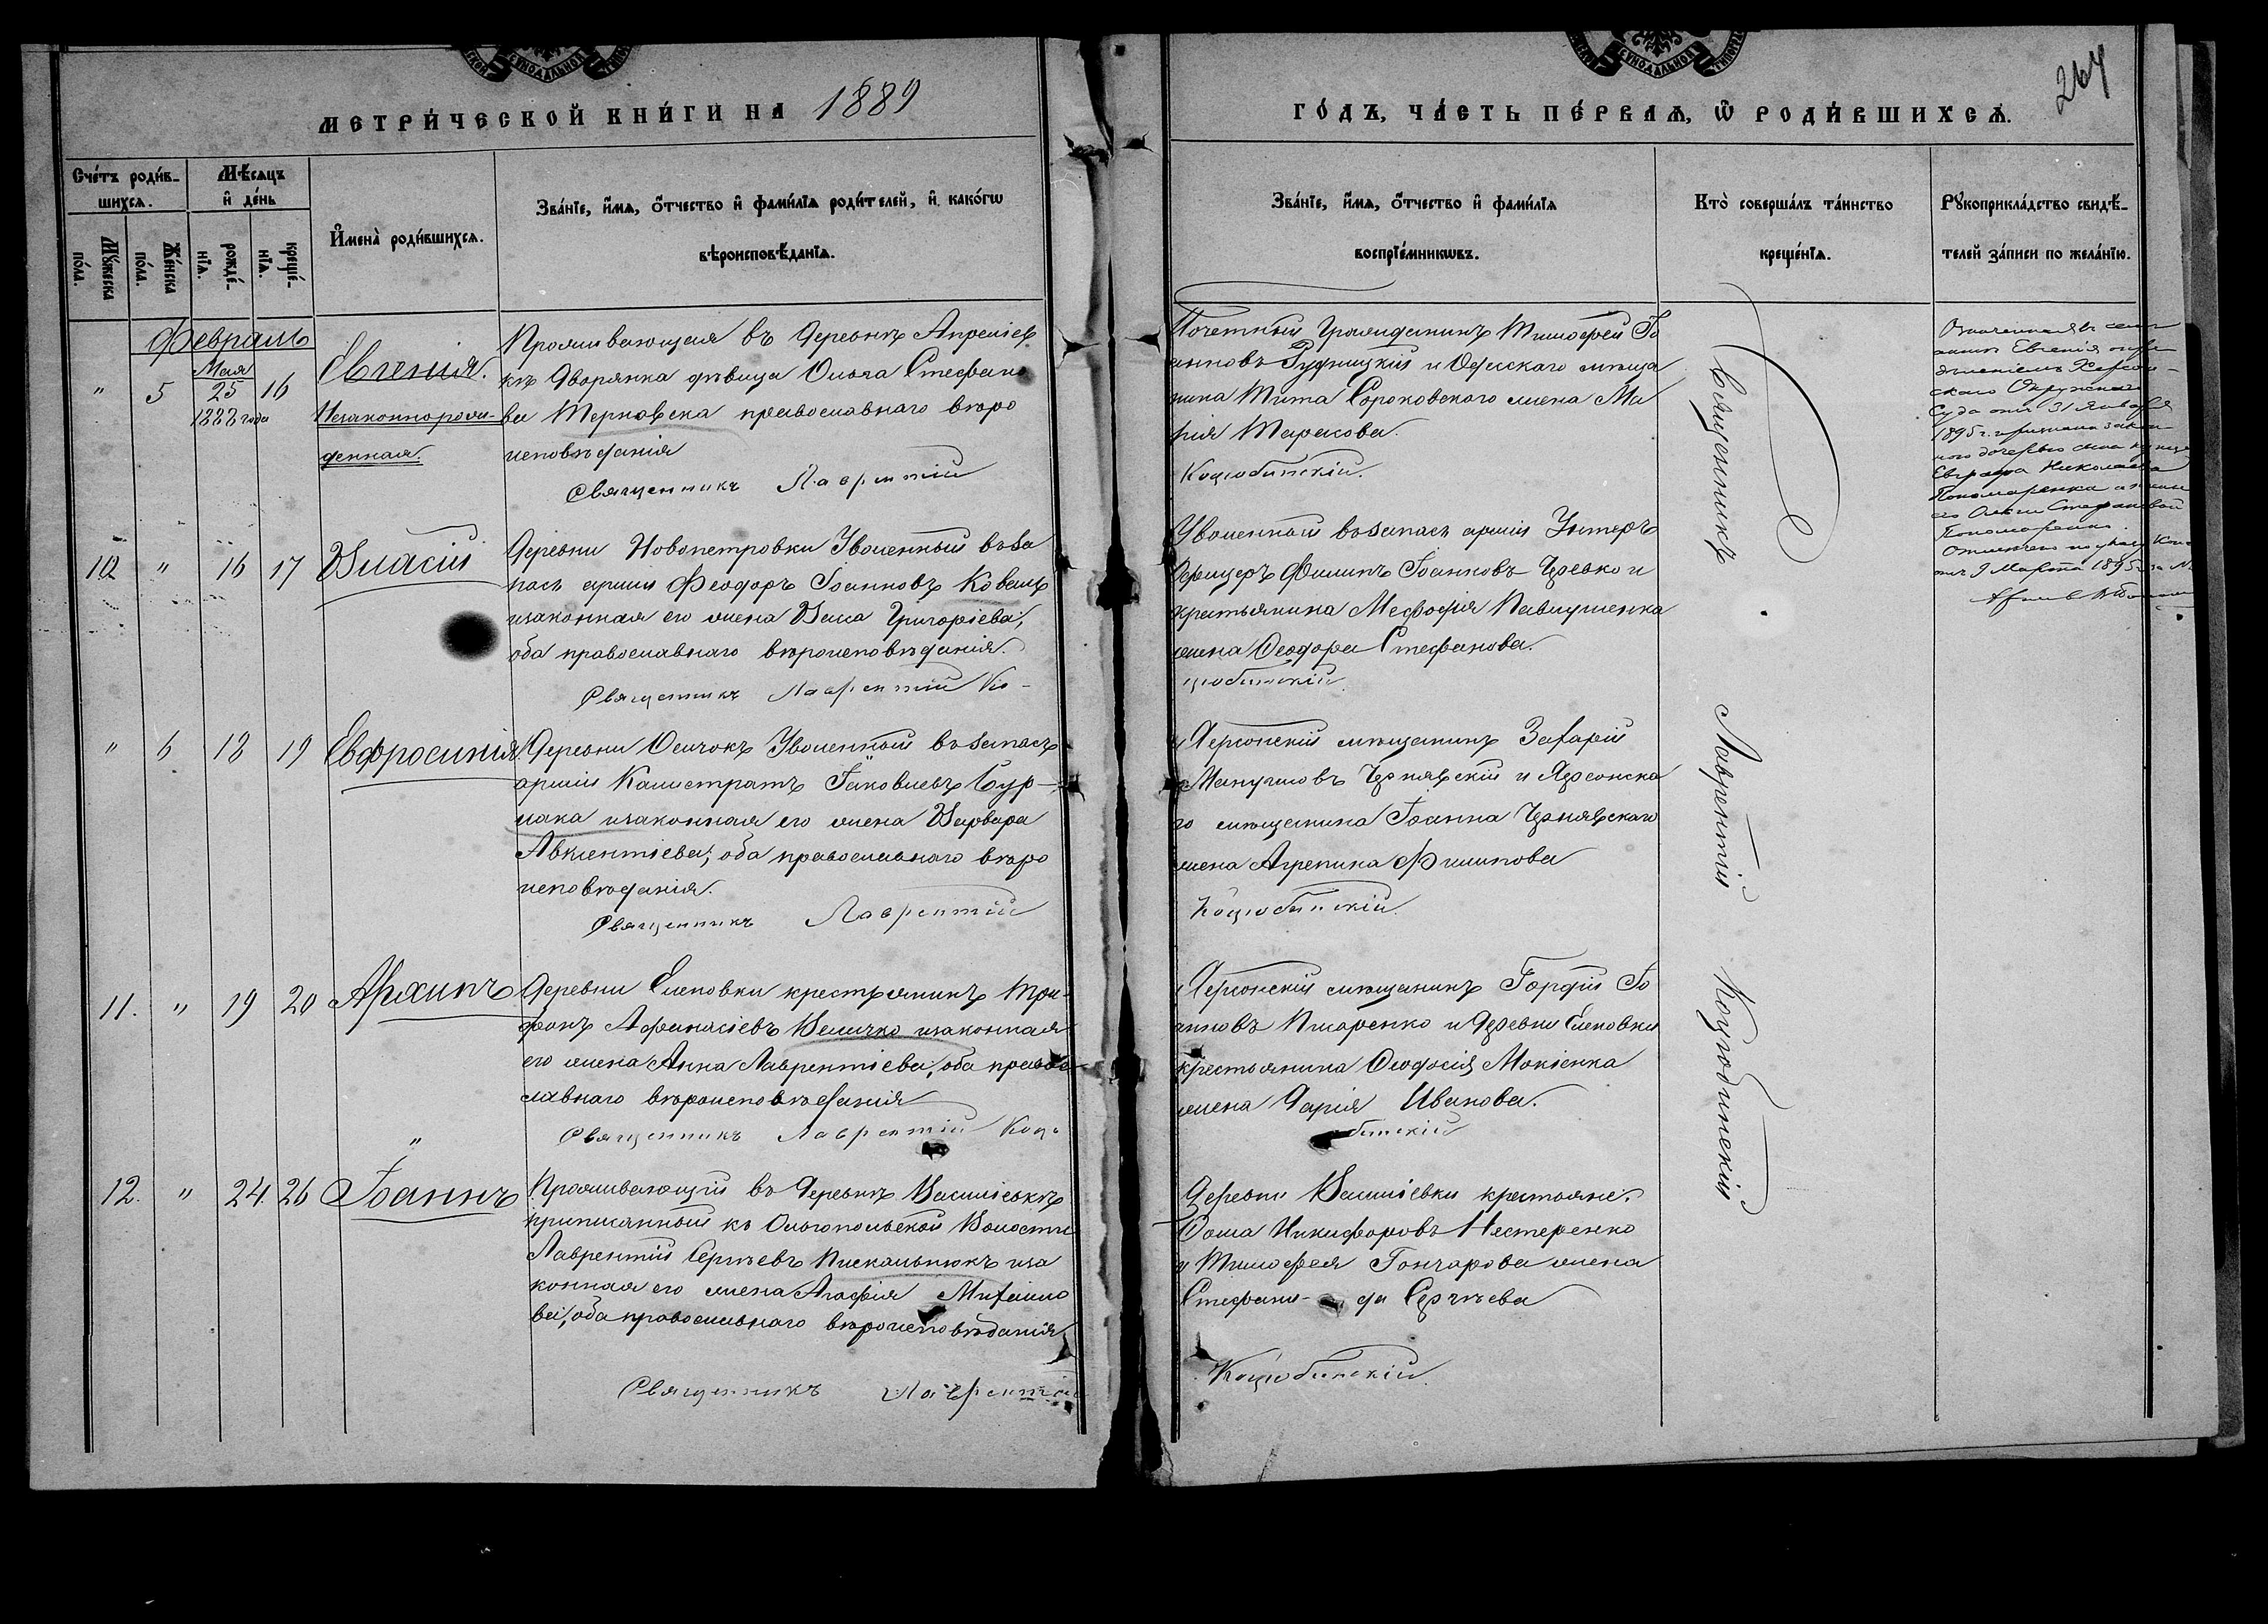 МЕТРИ́ЧЕСКОЙ КНИ́ГИ НА 1889
ГО́ДЪ, ЧА́СТЬ ПЕ́РВАѦ, Ѿ РОДИ́ВШИХСѦ.
264
Сче́тъ роди́в-
шихсѧ.
Мѣ́сѧцъ
и҆ де́нь
Мꙋ́жеска
по́ла.
Же́нска
по́ла.
рожде́-
нїѧ.
креще́-
нїѧ.
И҆мена̀ роди́вшихсѧ.
Зва́нїе, и҆́мѧ, ѻ҆́тчество и҆ фами́лїѧ роди́телей, и҆ како́гѡ
вѣроисповѣ́данїѧ.
Зва́нїе, и҆́мѧ, ѻ҆́тчество и҆ фами́лїѧ
воспрїе́мникѡвъ.
Кто̀ соверша́лъ та́инство
креще́нїѧ.
Рꙋкоприкла́дство свидѣ́-
телей за́писи по жела́нїю.
Февраль
" 5
Мая
25
1888 года
16
Евгенія.
Незаконнорож-
денная.
Проживающая въ Деревнѣ Апреліев
кѣ Дворянка дѣвица Ольга Стефано
ва Терновска православнаго вѣро
исповѣданія
Священникъ Лаврентій
Почетный Гражданинъ Тимофей Іо
анновъ Рудницкій и Одесскаго мѣща
нина Тита Сороковского жена Ма
рія Тарасова.
Коцюбинскій.
Означенная въ семъ
Евгенія опре
дѣленіемъ Херсон-
скаго Окружнаго
Суда отъ 31 Января
1895 г. признана закон
ною дочерью сына
Евграфа Николаева
Пономаренка и жены
его Ольги Стефановой
Пономаренко.
отъ 9 Марта 1895 г. за №
10 " 16 17 Власій
Деревни Новопетровки Уволенный въ за
пасъ арміи Феодоръ Іоанновъ Коваль
изаконная его жена Васса Григоріева,
оба православнаго вѣроисповѣданія.
Священникъ Лаврентій Ко-
Уволенный въ запасъ арміи Унтеръ
Офицеръ Филипъ Іоанновъ Цревко и
крестьянина Мефодія Павлушенка
жена Феодора Стефанова.
цюбинскій
" 6 18 19 Евфросинія
Деревни Осичокъ Уволенный въ запасъ
арміи Калистратъ Іаковлевъ Бур-
лака изаконная его жена Варвара
Авксентіева, оба православнаго вѣро
исповѣданія.
Священникъ Лаврентій
Херсонскій мѣщанинъ Захарій
Мануиловъ Чернявскій и Херсонска
го мѣщанина Іоанна Чернявскаго
жена Агрепина Филипова
Коцюбинскій.
11. " 19 20 Архипъ
Деревни Еленовки крестьянинъ Три-
фонъ Афанасіевъ Величко изаконная
его жена Анна Лаврентіева, оба право
славнаго вѣроисповѣданія
Священникъ Лаврентій Коцю
Херсонскій мѣщанинъ Гордій Іо
анновъ Писаренко и Деревни Еленовки
крестьянина Феодосія Мокіенка
жена Дарія Иванова.
бинскій
12. " 24 26 Іоаннъ
Проживающій въ Деревнѣ Василіевкѣ
приписанный къ Ольгопольской Волости
Лаврентій Сергѣевъ Пискальнюкъ иза
конная его жена Агафія Михаило
ва, оба православнаго вѣроисповѣданія
Священникъ Лаврентій
Деревни Василіевки крестьяне:
Фома Никифоровъ Нестеренко
и Тимофея Гончарова жена
Стефани- да Сергѣева
Коцюбинскій.
Священникъ Лаврентій Коцюбинскій